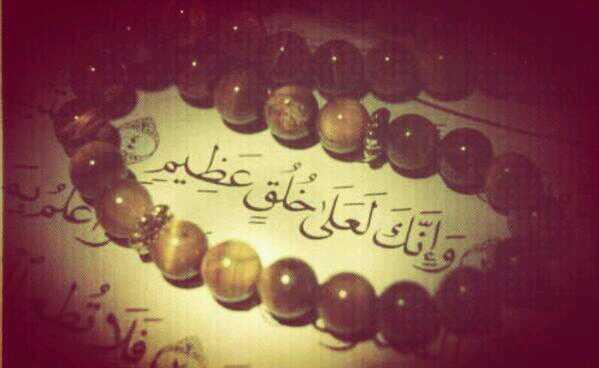 وَإِنَّكَ لَعَلَىٰ خُلُقٍ عَظِيمٍ
أَعْلَمُ
فَلَا تُطِعِ